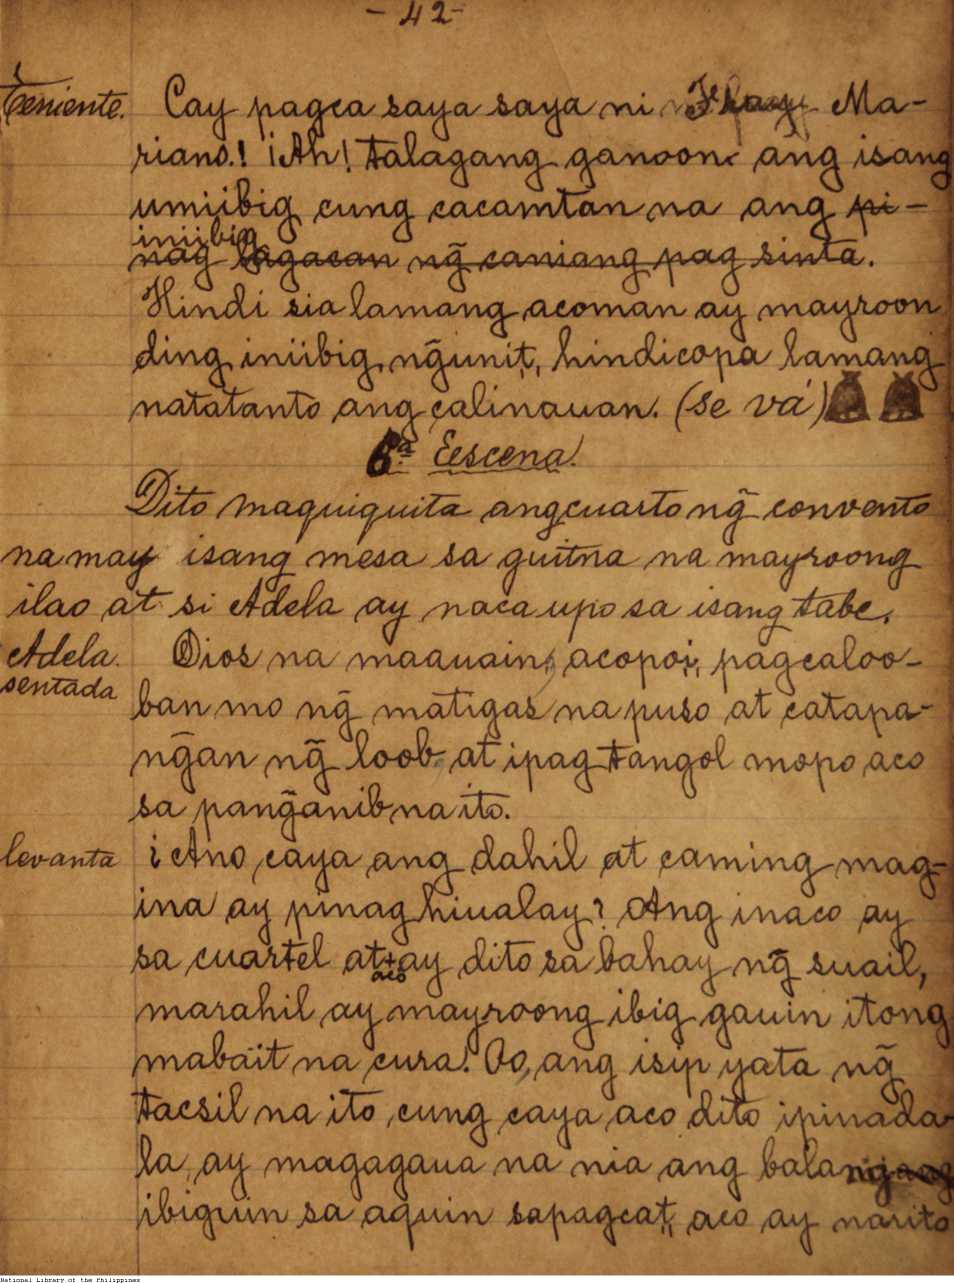 - 42 -
Teniente. Cay pagca saya saya ni Fray Ma-
riano.! ¡Ah! talagang ganoon ang isang
umiibig cung cacamtan na ang pi-
iniibig
nag lagacan ng̃ caniang pag sinta.
Hindi sia lamang acoman ay mayroon
ding iniibig, ng̃unit, hindicopa lamang
natatanto ang calinauan. (se vá)
6ª. Eescena.
Dito maquiquita angcuarto ng̃ convento
na may isang mesa sa guitna na mayroong
ilao at si Adela ay naca upo sa isang tabe.
Adela. Dios na maauain, acopoi, pagcaloo-
sentada
ban mo ng̃ matigas na puso at catapa-
ng̃an ng̃ loob at ipag tangol mopo aco
sa pang̃anib na ito.
levanta ¿Ano caya ang dahil at caming mag-
ina ay pinag hiualay? Ang inaco ay
sa cuartel at + ay dito sa bahay ng̃ suail,
aco
marahil ay mayroong ibig gauin itong
mabait na cura! Oo, ang isip yata ng̃
tacsil na ito, cung caya aco dito ipinada-
la, ay magagaua na nia ang balang
ibiguin sa aquin sapagcat, aco ay narito
National Library of the Philippines